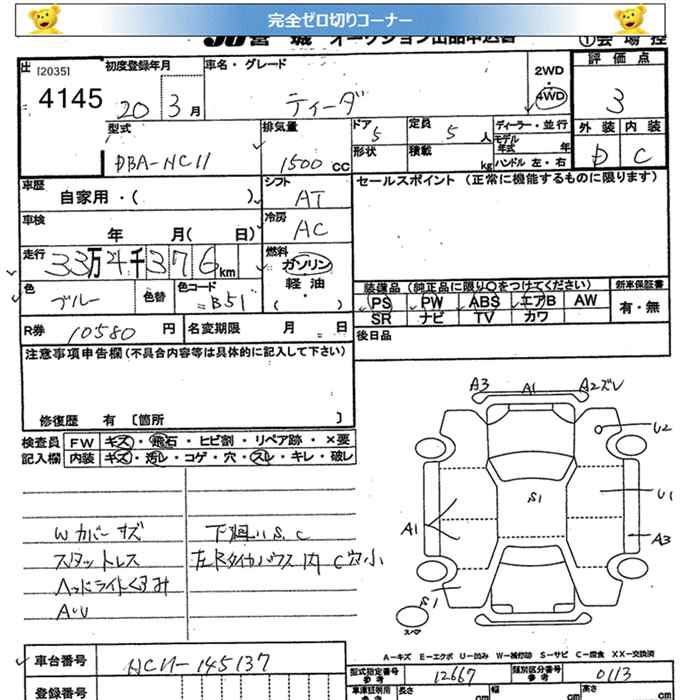 完全ゼロ切りコーナー
JU宮城 オークション出品申込書 ①会場控
出 [2035] 初度登録年月 車名・グレード 2WD 評価点
4145 20 3月 ティーダ 4WD 3
型式 排気量 ドア 5 定員 5人 ディーラー・並行 外装 内装
DBA-NC11 1500CC 形状 積載 kg モデル年式 年 D C
ハンドル 左・右
車歴 自家用・( ) シフト AT セールスポイント (正常に機能するものに限ります)
車検 年 月( 日) 冷房 AC
走行 33万4千376km 燃料 ガソリン 軽油 ( )
装備品(純正品に限り○をつけてください) 新車保証書
色 ブルー 色替 色コード B51 PS PW ABS エアB AW 有・無
SR ナビ TV カワ
R券 10580円 名変期限 月 日 後日品
注意事項申告欄(不具合内容等は具体的に記入して下さい)
修復歴 有 〔箇所 〕
検査員 FW キズ・飛石・ヒビ割・リペア跡・×要
記入欄 内装 キズ・汚レ・コゲ・穴・スレ・キレ・破レ
A3 A1 A2ズレ
U2
S1 U1
A1 A3
S1
スペア
Wカバーキズ 下廻りS.C
スタットレス 左Rタイヤハウス内C穴小
ヘッドライトくすみ
A・U
A-キズ E-エクボ U-凹み W-補修跡 S-サビ C-腐食 XX-交換済
車台番号 NC11-145137 型式指定番号 参考 12667 類別区分番号 参考 0113
登録番号 車庫証明用 参考 長さ cm 幅 cm 高さ cm